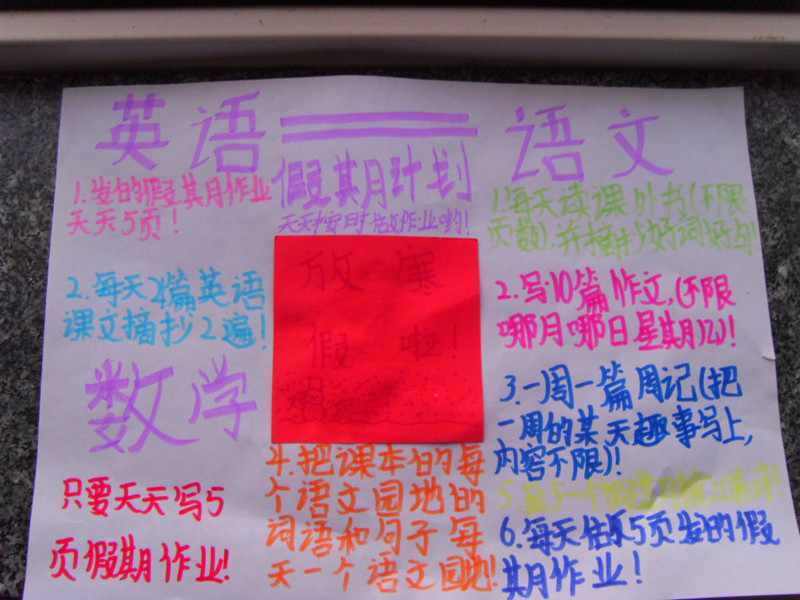 英语
1.发的假期作业
天天5页!
2.每天2篇英语
课文摘抄2遍!
数学
只要天天写5
页假期作业!
假期计划
天天按时做作业哟!
放寒
假啦!
4.把课本的每
个语文园地的
词语和句子每
天一个语文园地!
语文
1.每天读课外书(不限
页数).并摘抄好词好句!
2.写10篇作文,(不限
哪月哪日星期几)!
3.一周一篇周记(把
一周的某天趣事写上,
内容不限)!
5.
6.每天做5页发的假
期作业!